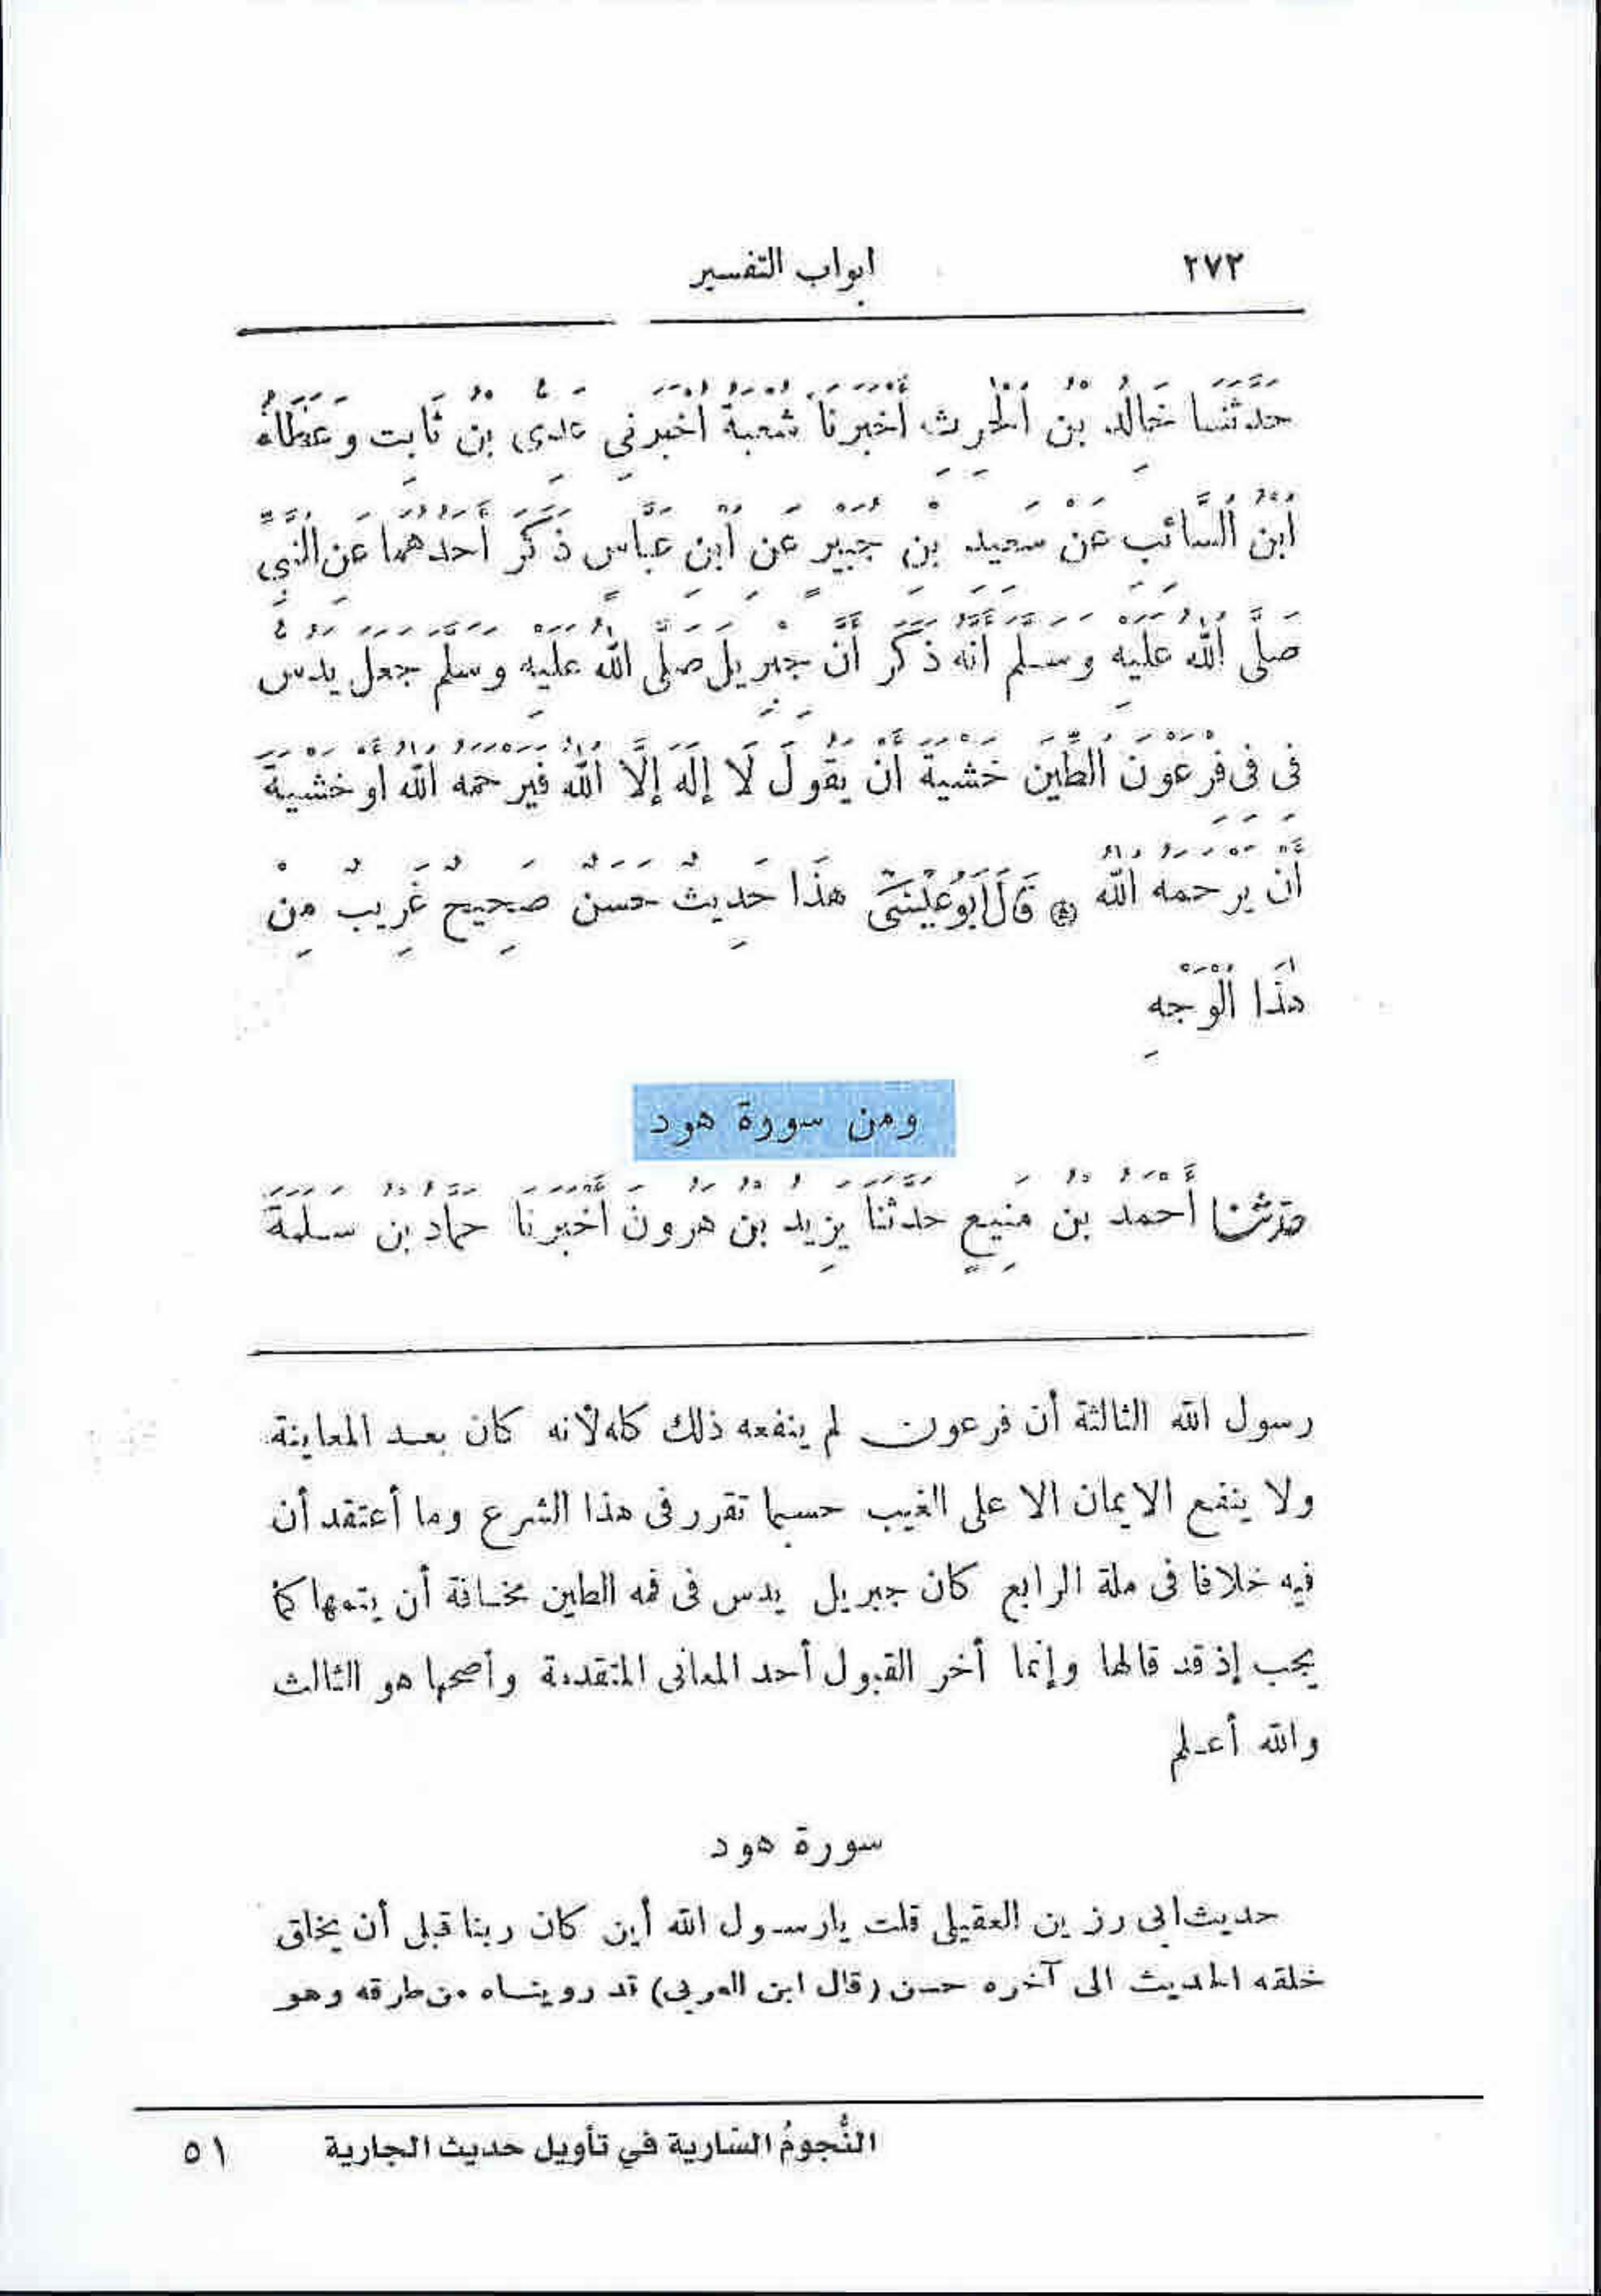 ٢٧٢ ابواب التفسير
حَدَّثَنَا خَالِدُ بْنُ الْحَرِثِ أَخْبَرَنَا شُعْبَةُ أَخْبَرَنِي عَدِيُّ بْنُ ثَابِتٍ وَعَطَاءُ
ابْنُ السَّائِبِ عَنْ سَعِيدِ بْنِ جُبَيْرٍ عَنِ ابْنِ عَبَّاسٍ ذَكَرَ أَحَدُهُمَا عَنِ النَّبِيِّ
صَلَّى اللهُ عَلَيْهِ وَسَلَّمَ أَنَّهُ ذَكَرَ أَنَّ جِبْرِيلَ صَلَّى اللهُ عَلَيْهِ وَسَلَّمَ جَعَلَ يَدُسُّ
فِي فِي فِرْعَوْنَ الطِّينَ خَشْيَةَ أَنْ يَقُولَ لَا إِلَهَ إِلَّا اللهُ فَيَرْحَمَهُ اللهُ أَوْ خَشْيَةَ
أَنْ يَرْحَمَهُ اللهُ ۞ قَالَ أَبُو عِيْسَى هَذَا حَدِيثٌ حَسَنٌ صَحِيحٌ غَرِيبٌ مِنْ
هَذَا الْوَجْهِ
ومن سورة هود
حدثنا أَحْمَدُ بْنُ مَنِيعٍ حَدَّثَنَا يَزِيدُ بْنُ هَرُونَ أَخْبَرَنَا حَمَّادُ بْنُ سَلَمَةَ
رسول الله الثالثة أن فرعون لم ينفعه ذلك كله لأنه كان بعد المعاينة
ولا ينفع الايمان الا على الغيب حسبما تقرر فى هذا الشرع وما أعتقد أن
فيه خلافا فى ملة الرابع كان جبريل يدس فى فمه الطين مخافة أن يتمها كما
يجب إذ قد قالها وإنما أخر القبول أحد المعانى المتقدمة وأصحها هو الثالث
والله أعلم
سورة هود
حديث ابى رزين العقيلى قلت يارسول الله أين كان ربنا قبل أن يخلق
خلقه الحديث الى آخره حسن (قال ابن العربى) قد رويناه من طرقه وهو
النُّجومُ السَّارية في تأويل حديث الجارية ٥١